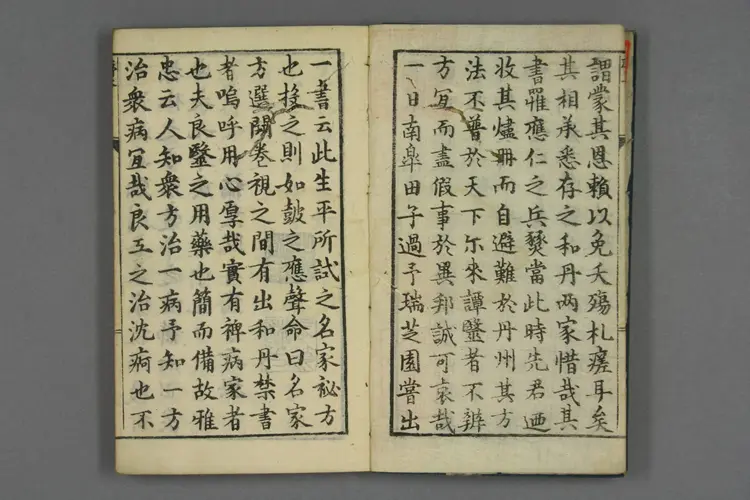 謂蒙其恩賴以免夭殤札瘥耳矣
其相承悉存之和丹兩家惜哉其
書罹應仁之兵燹當此時先君廼
收其燼冊而自避難於丹州其方
法不普於天下尓來譚鑒者不辨
方冝而盡假事於異邦誠可哀哉
一日南皐田子過予瑞芝園嘗出
一書云此生平所試之名家祕方
也投之則如鼓之應聲命曰名家
方選開卷視之間有出和丹禁書
者嗚呼用心厚哉實有裨病家者
也夫良毉之用藥也簡而備故雅
忠云人知衆方治一病予知一方
治衆病冝哉良工之治沈痾也不